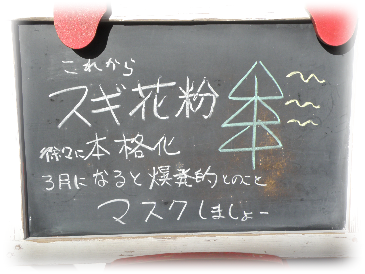 これから
スギ花粉
徐々に本格化
3月になると爆発的とのこと
マスクしましょー